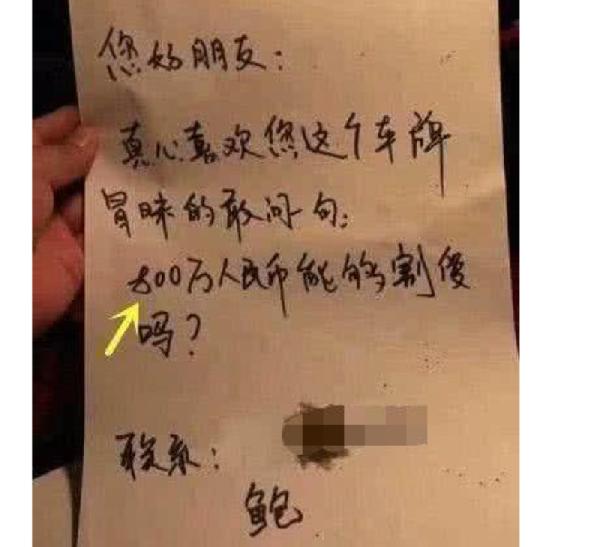 您好朋友：
真心喜欢您这个车牌
冒昧的敢问一句：
800万人民币能够割爱
吗？
联系：
鲍